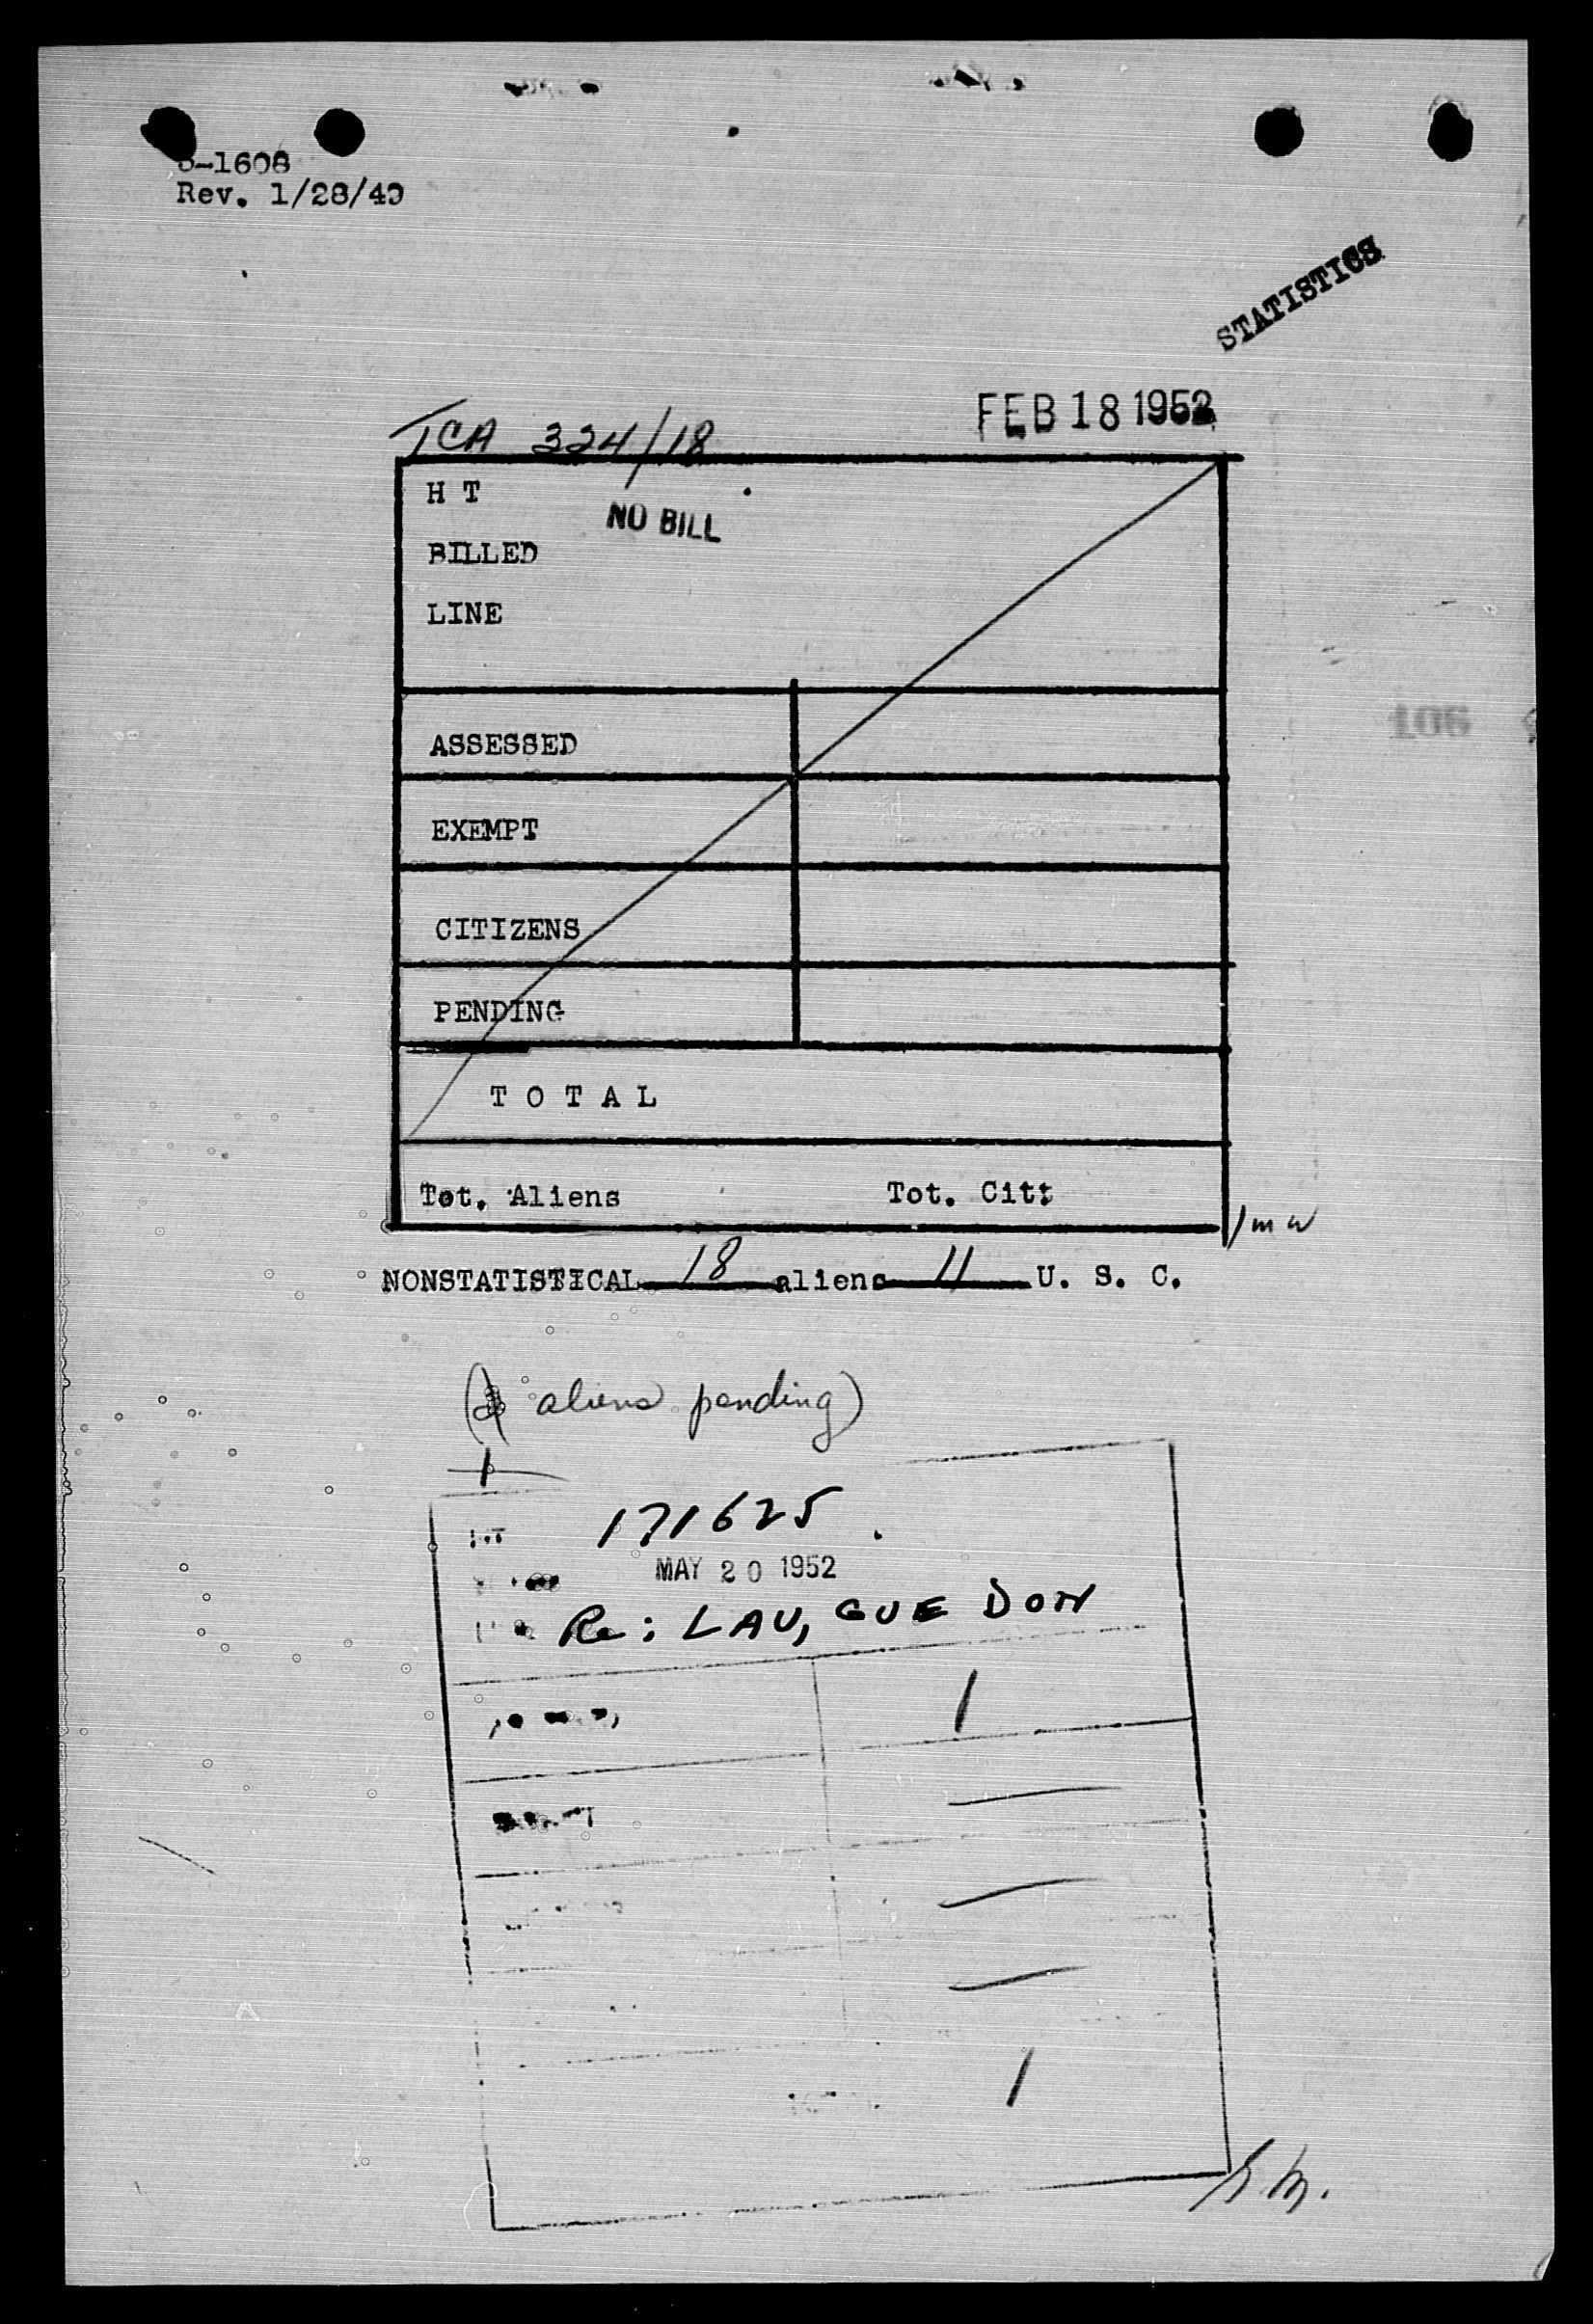 -1608
Rev. 1/28/49
STATISTICS
FEB 18 1952
TCA 324/18
H T
NO BILL
BILLED
LINE
ASSESSED
EXEMPT
CITIZENS
PENDING
T O T A L
Tot. Aliens Tot. Citz
/mw
NONSTATISTICAL 18 aliens 11 U. S. C.
aliens pending)
1
171625
MAY 20 1952
Re: LAU, GUE DON
1
1